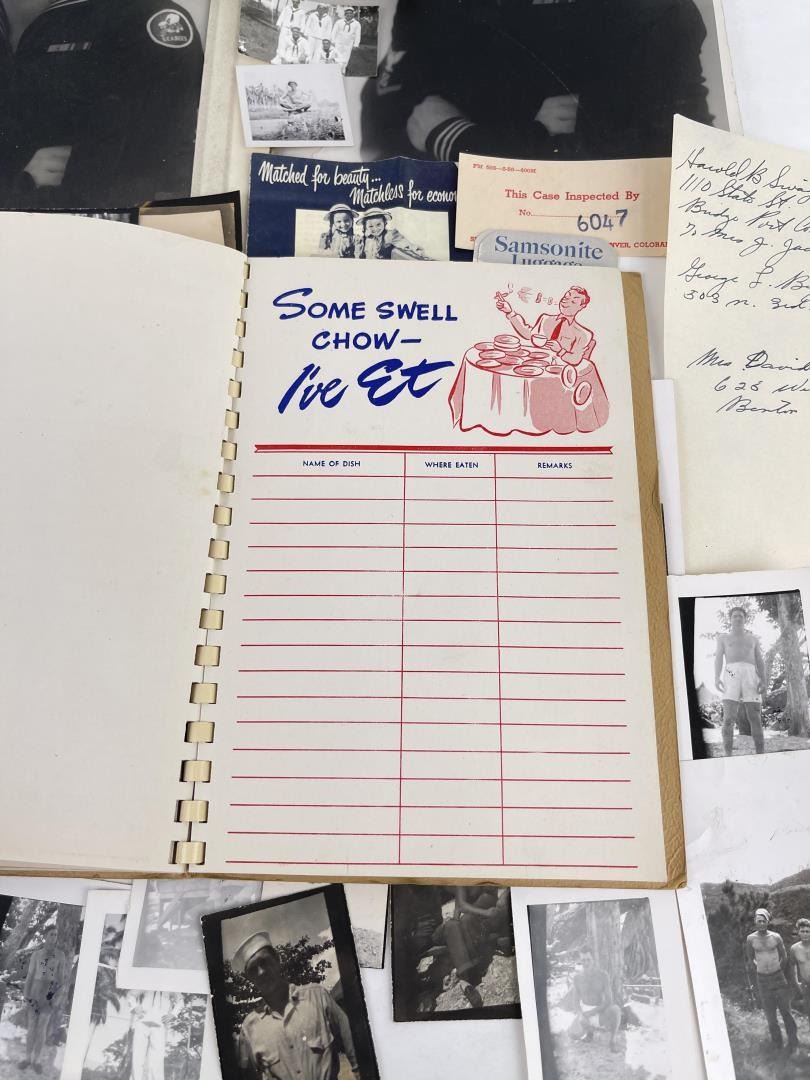 SEABEES
Matched for beauty...
Matchless for econo
FM 525-5-50-400M
This Case Inspected By
No. 6047
NVER, COLORAD
Samsonite
Luggage
Harold B
1110 State St
Bridge Port
To Mrs J. Jac
George L. B
303 n. 3rd
Mrs David
628 Wh
Benton
SOME SWELL
CHOW—
I've Et
NAME OF DISH WHERE EATEN REMARKS